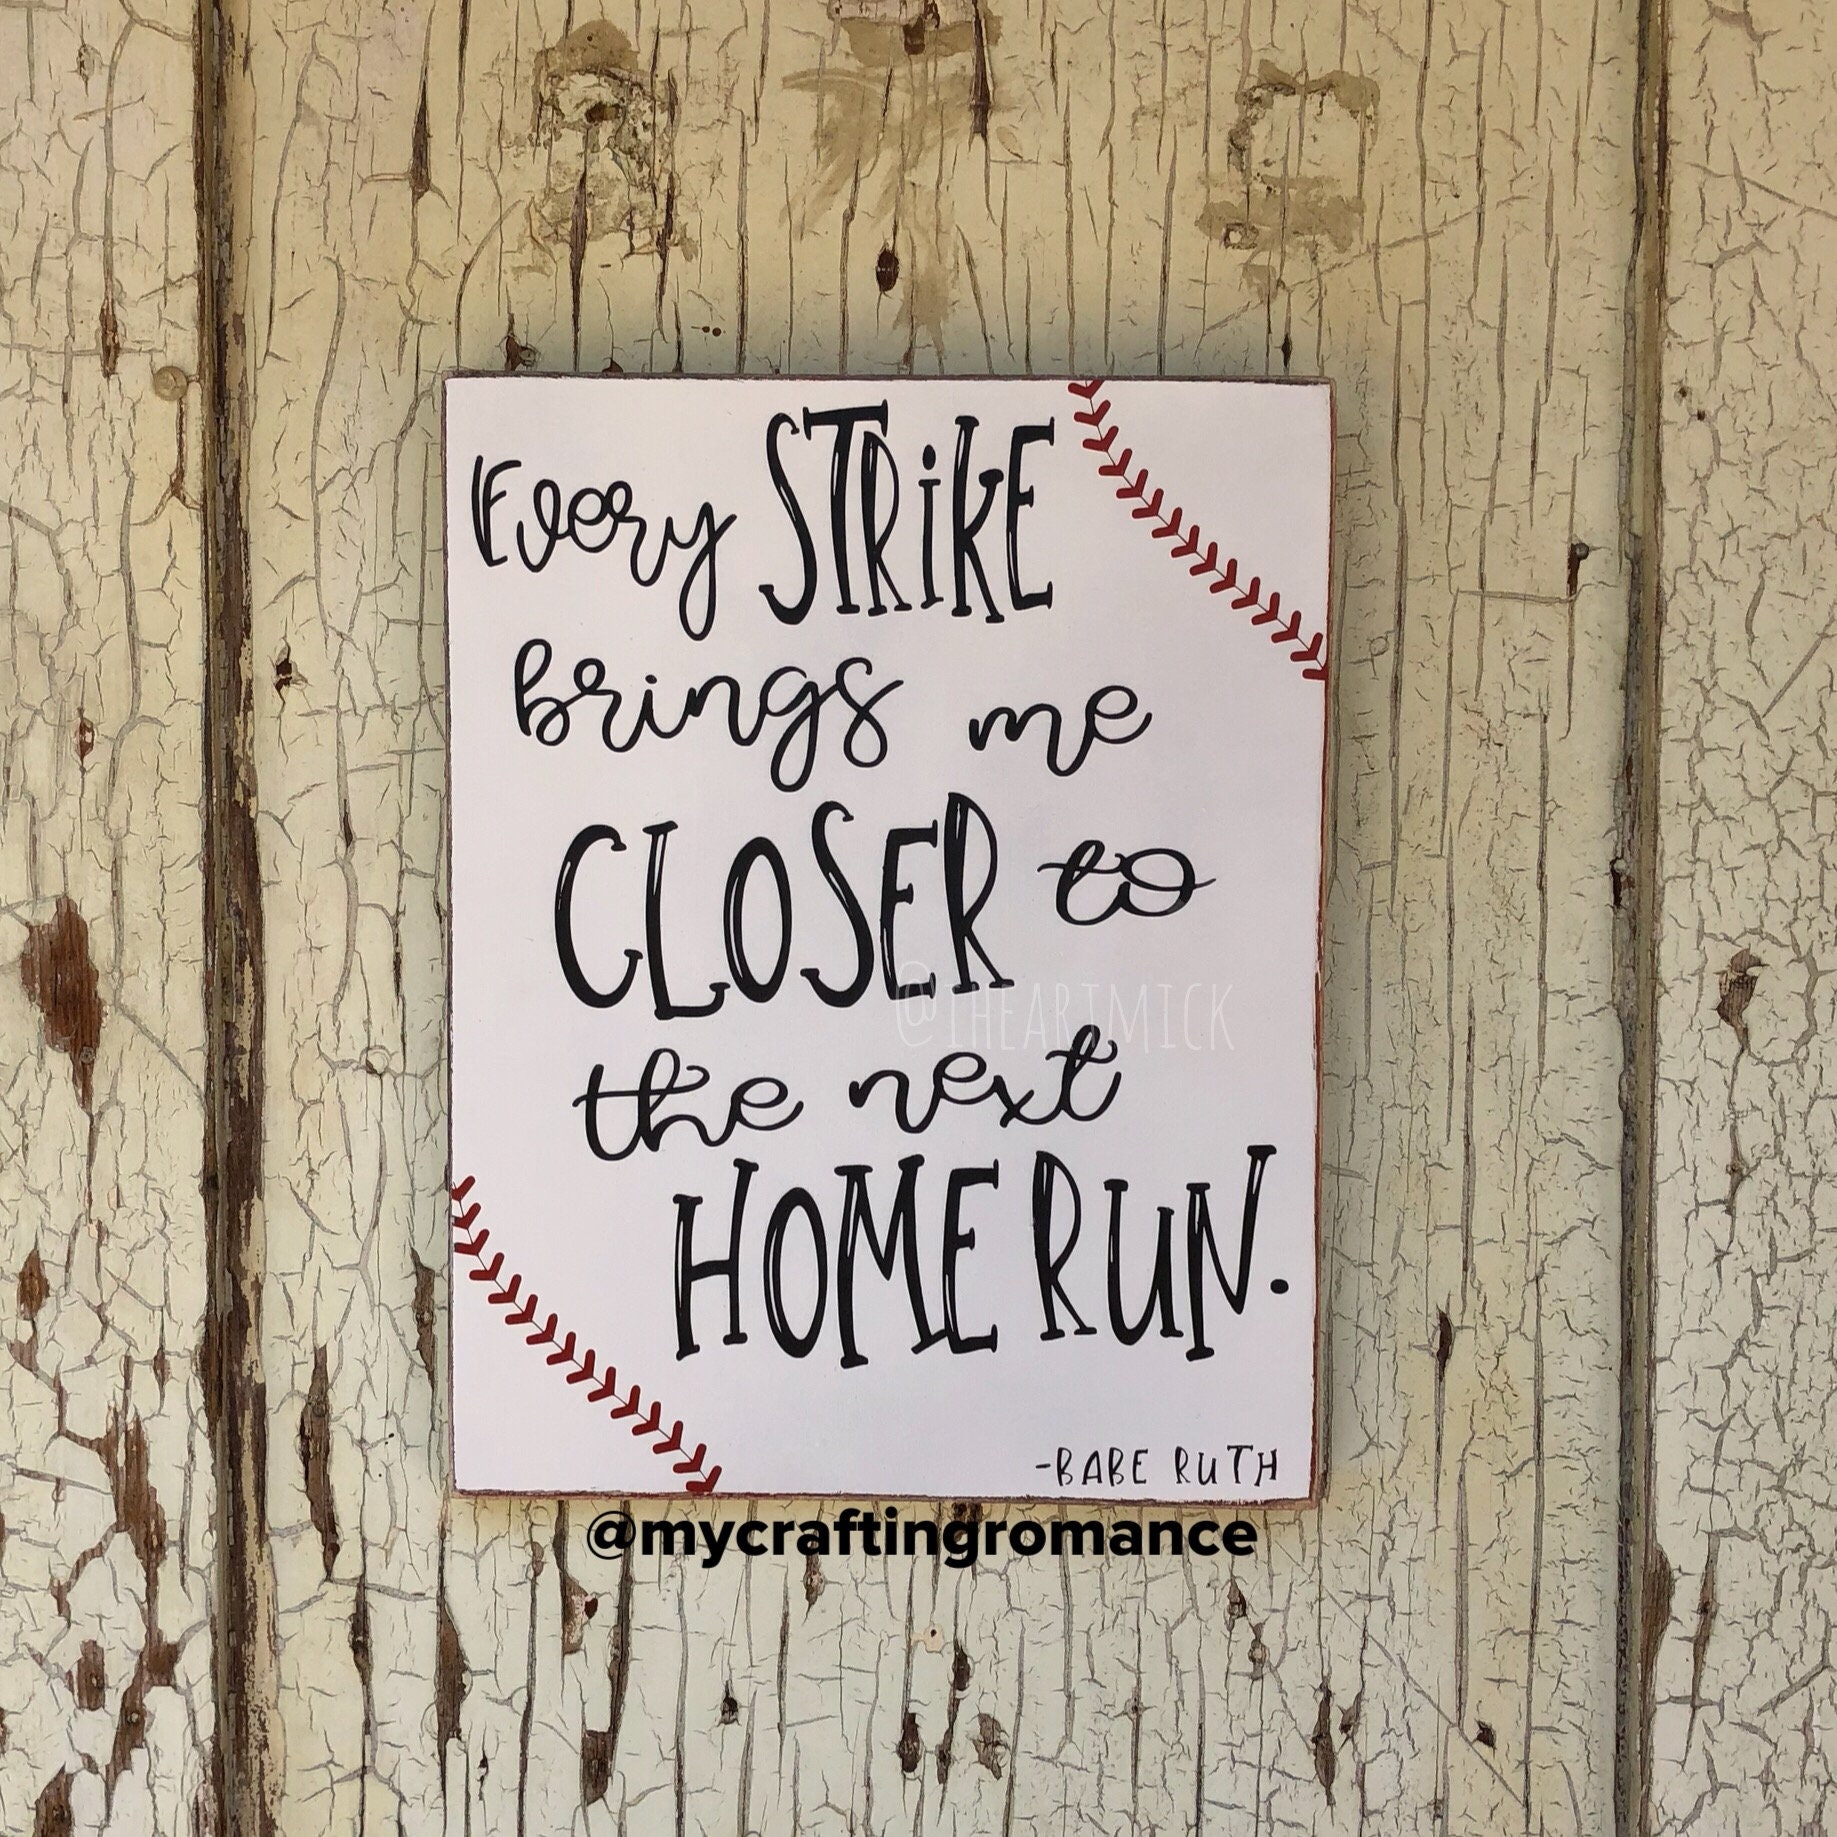 Every STRiKE
brings me
CLOSER to
@IHEARTMICK
the next
HOME RUN.
-BABE RUTH
@mycraftingromance